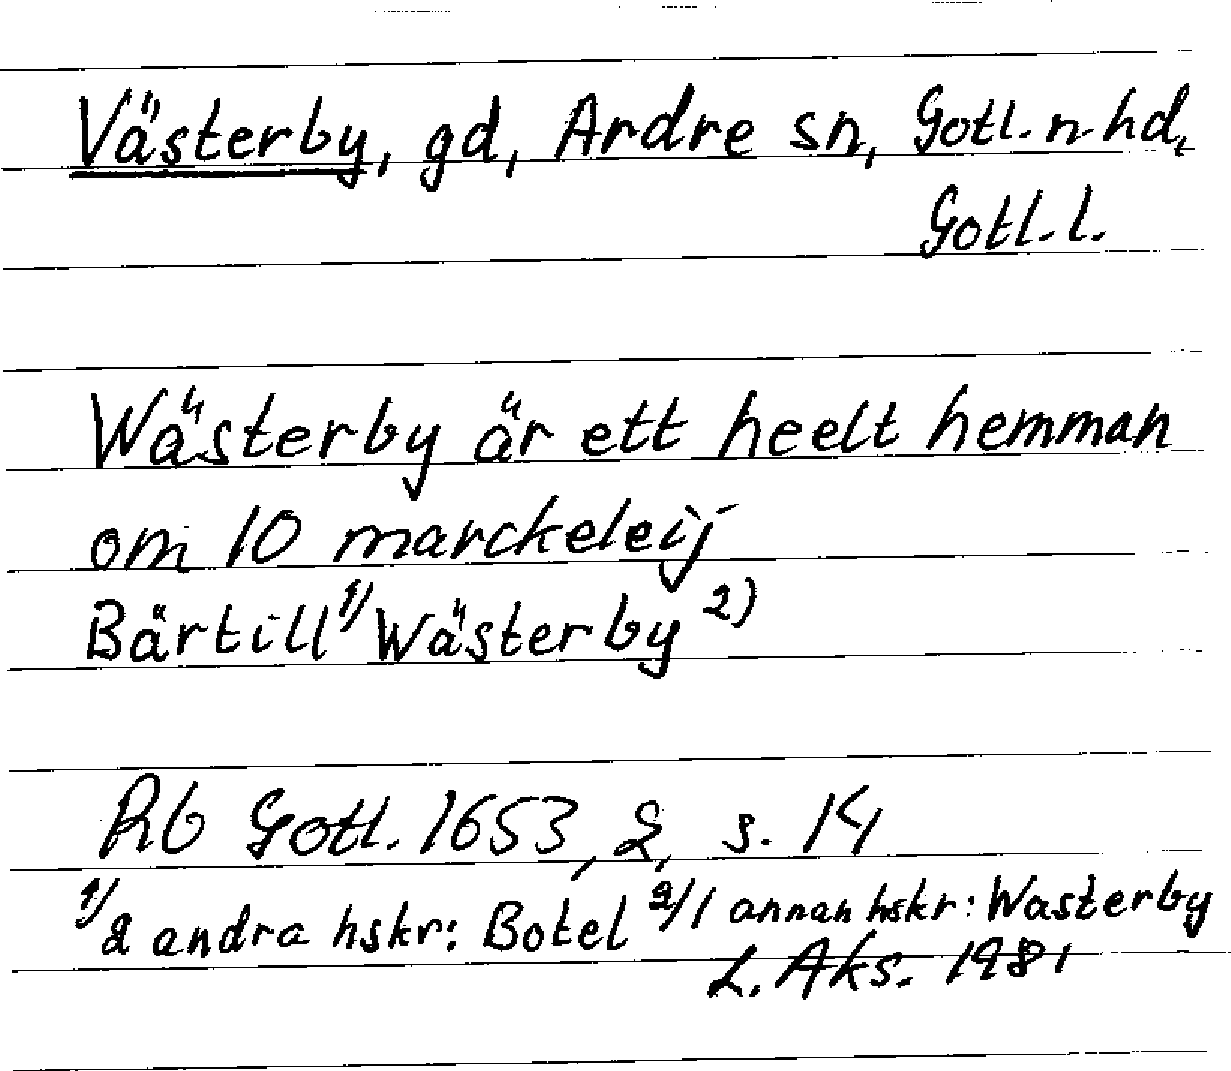 Västerby, gd, Ardre sn, Gotl. n. hd,
Gotl. l.
Wästerby är ett heelt hemman
om 10 marckeleij
Bärtill 1/ Wästerby 2)
Rb Gotl. 1653, 2, s. 14
1/ 2 andra hskr: Botel 2/ 1 annan hskr: Wasterby
L. Aks. 1981